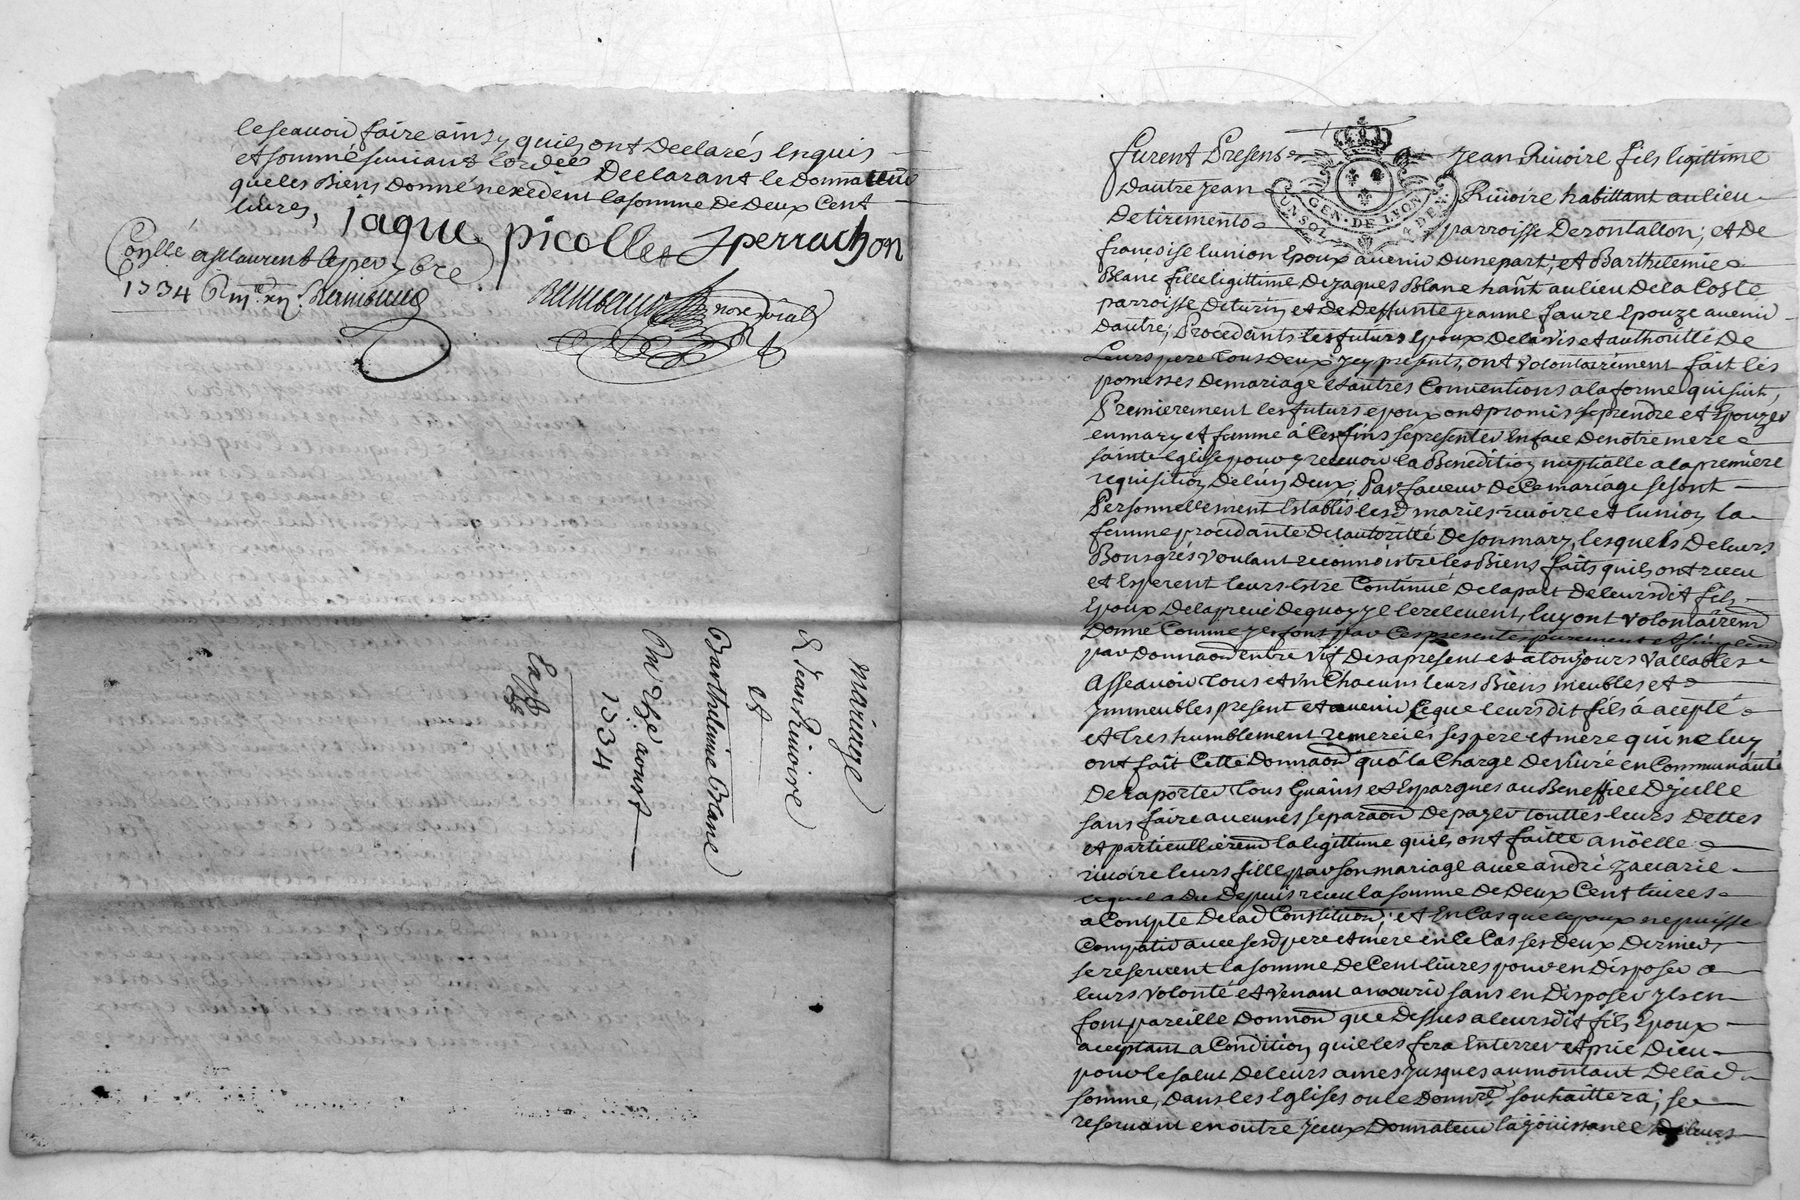 leseavoir faire ainsy quils ont Declarés Enquis
et sommé suivant lordee Declarant le Donnateur
que les Biens Donné nexedent la somme De Deux Cent
livres,
jaque picollet Sperrachon
Conllé a st laurent le per 7bre
1734
Rambaud
Rambaud nore Royal
mariage
D Jean Rivoire
et
Barthelemie Blanc
Du aoust
1734
furent Presens Jean Rivoire fils ligittime
Dautre Jean Rivoire habittant au lieu
De tiremento parroisse De rontallon, et De
francoise lunion Epoux avenir Dune part, et Barthelemie
Blanc fille ligittime De Jaques Blanc hant au lieu De la Coste
parroisse De turin et De Deffunte granne faure Epouze avenir
Dautre; Procedants les futurs Epoux De lavis et authoritté De
Leurs pere tous Deux Jcy presents, ont volontairement fait les
promesses De mariage et autres Conventions a la forme qui suit,
Premierement les futurs epoux ont promis se prendre et Epouzer
en mary et femme á Ces fins se presenter En face De notre mere
sainte Eglise pour y recevoir la Benedition nuptialle a la premiere
requisition De lun Deux, Par faveur De Ce mariage se sont
Personnellement Establis lesd maries rivoire et lunion la
femme procedante De lautoritté De son mary, lesquels De leurs
Bons gres voulant reconnoistre les Biens faits quils ont receu
et Esperent leurs Estre Continué De la part De leurs dit fils
Epoux De la preuve De quoy Jl les relevent, luy ont volontairemt
Donné Comme Jls font par Ces presentes purement et simplemt
par Donnaon entre vif Des a present et a toujours vallables
Asseavoir tous et un Chacuns leurs Biens meubles et
Jmmeubles present et avenir Ce que leurs dit fils á acepté
et tres humblement remerciés ses pere et mere qui ne luy
ont fait Cette Donnaon quá la Charge De vivre en Communauté
De raporter tous Guains et Epargnes au Beneffice Djcelle
sans faire aucunes separaon De payer touttes leurs Dettes
et particullieremt la ligittime quils ont faitte a nöelle
rivoire leurs fille par son mariage avec andré Zacarie
lequel a Du Depuis receu la somme De Deux Cent livres
a Compte De lad Constituon; et En Cas que lepoux ne puisse
Compatir avec sesd pere et mere en Ce Cas ses Deux Dernier
se reservent la somme De Cent livres pour en Disposer a
leurs volonté et venant a mourir sans en Disposer Jls en
font pareille Donnaon que Dessus a leursdit fils Epoux
aceptant a Condition quil les fera Enterrer et prié Dieu
pour le salut De leurs ames Jusques au montant De lad
somme, Dans les Eglises ou le Donnre souhaittera, se
reservant en outre Jceux Donnateur la jouissance De leurs
GEN. DE LYON
UN SOL